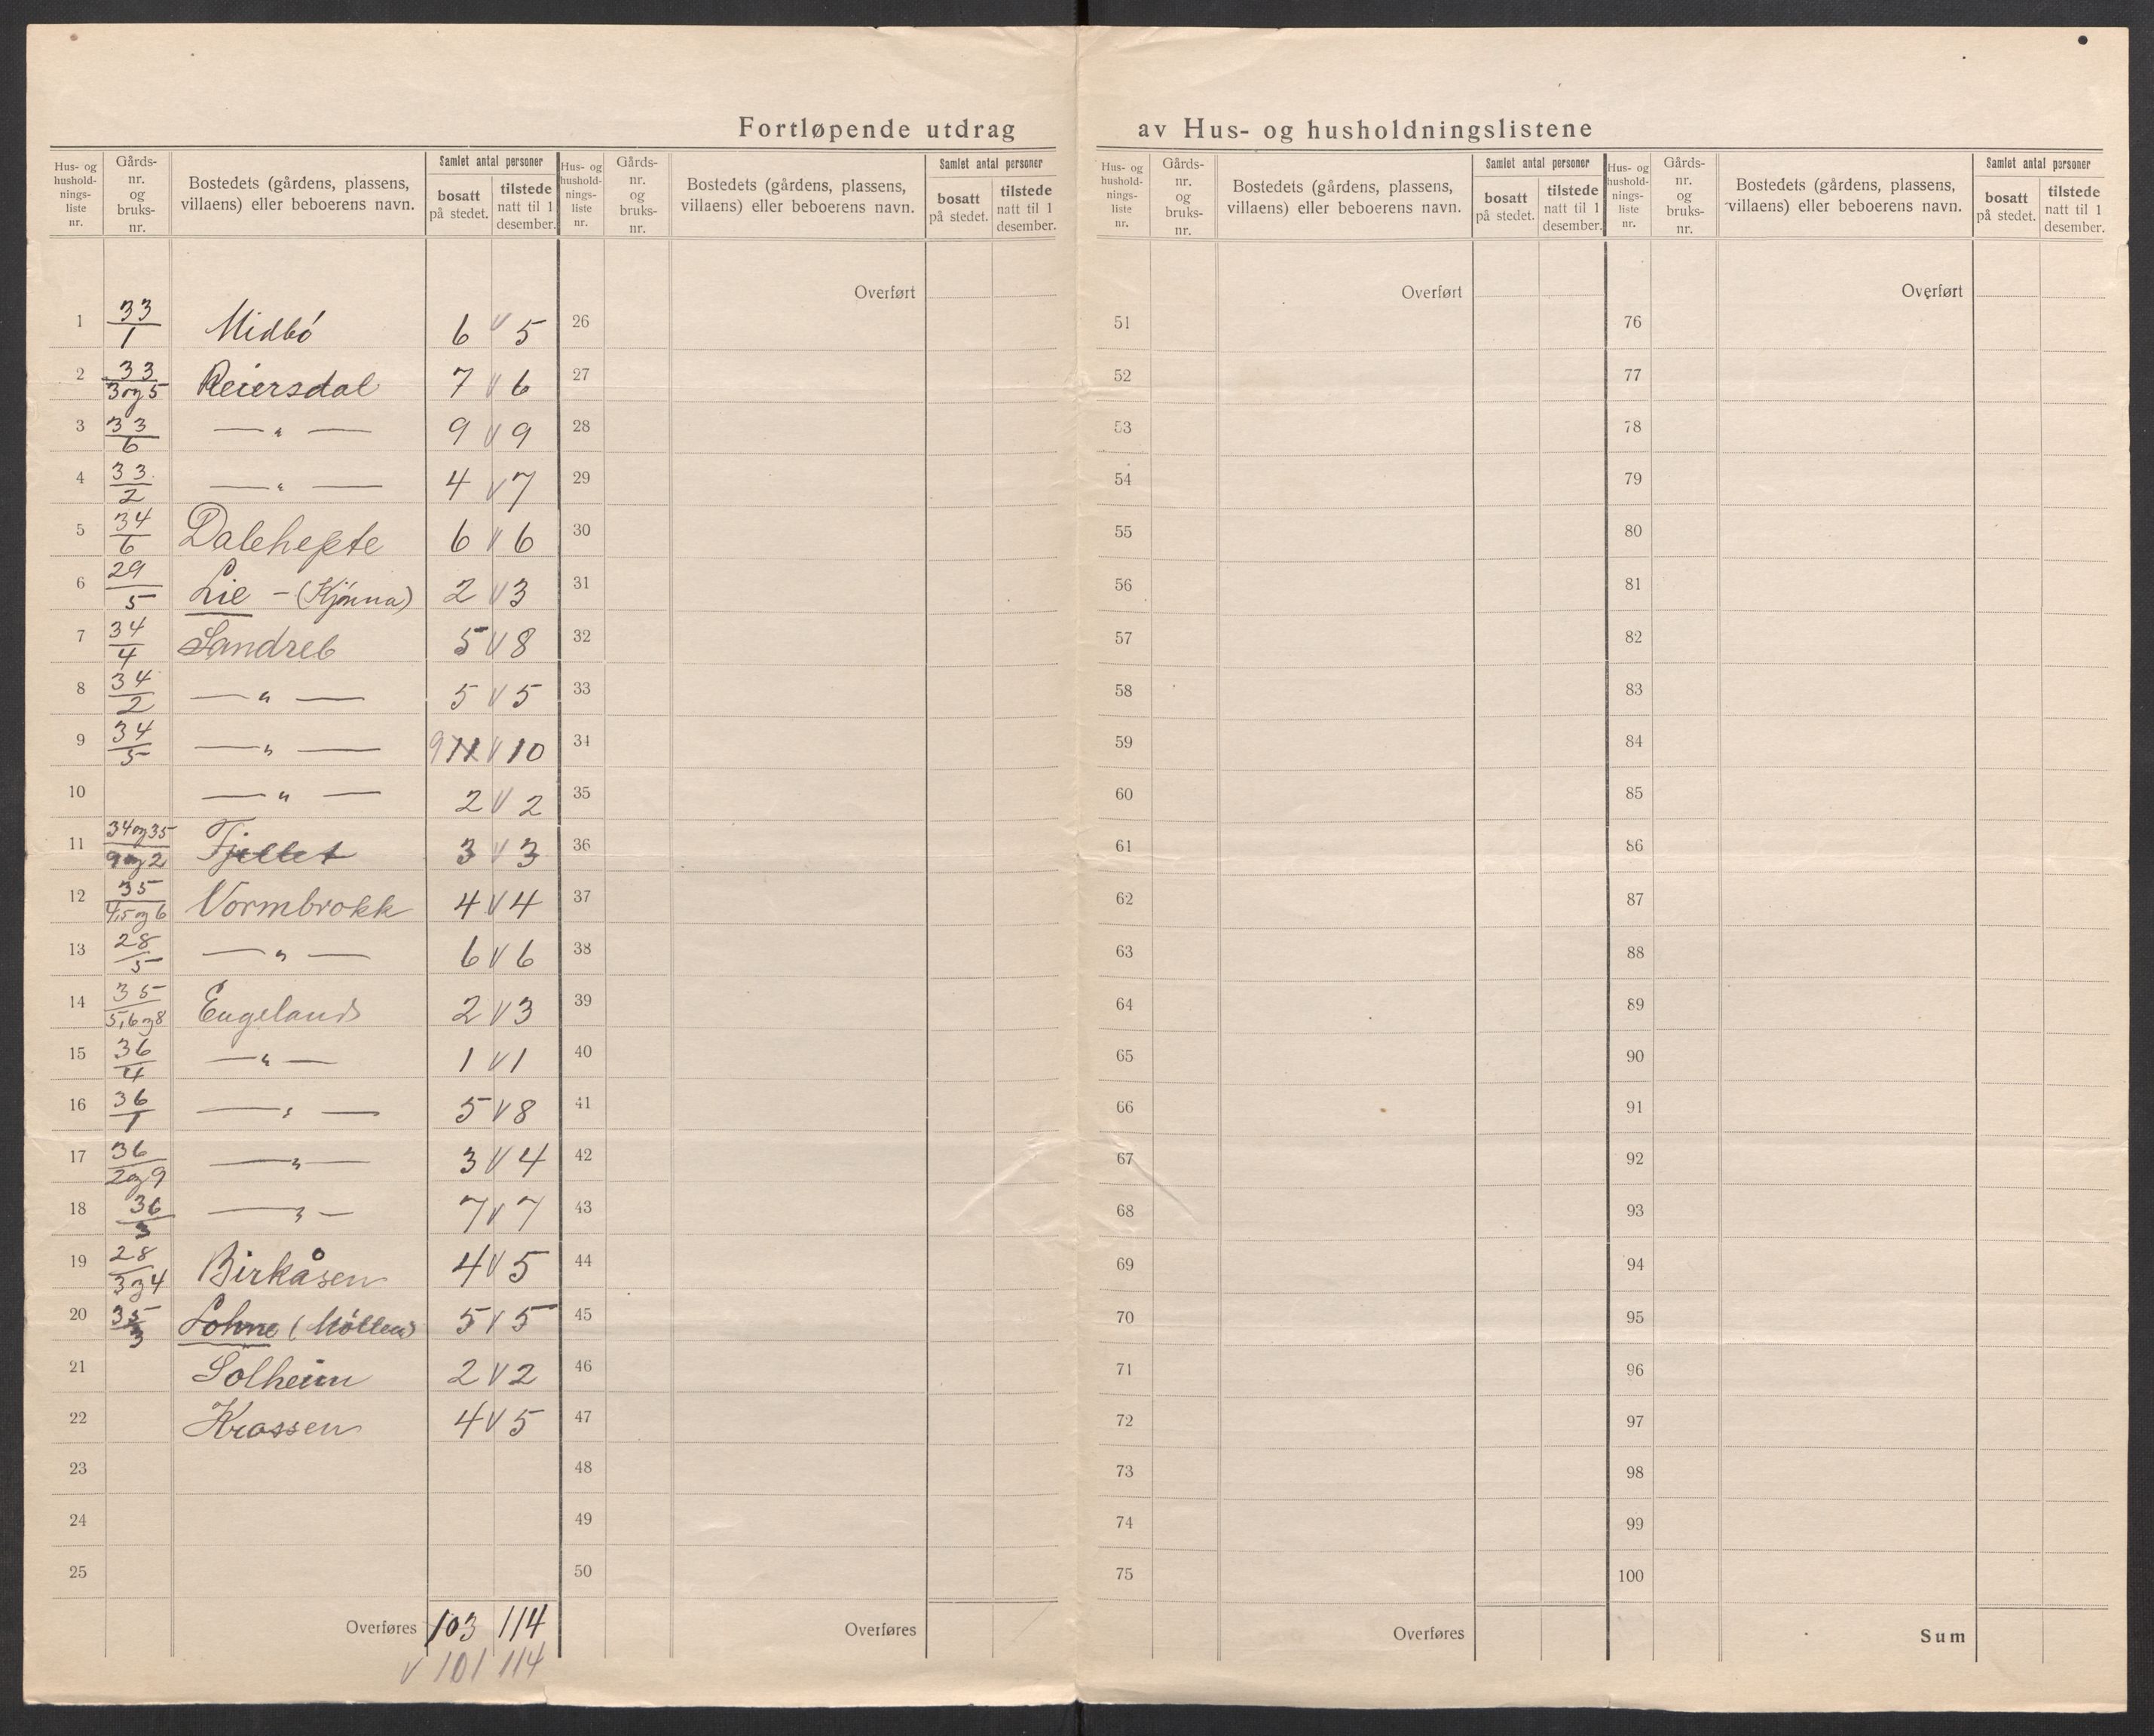 Fortløpende utdrag av Hus- og husholdningslistene
Hus- og husholdnings-liste nr. | Gårds-nr. og bruks-nr. | Bostedets (gårdens, plassens, villaens) eller beboerens navn. | Samlet antal personer | bosatt på stedet. | tilstede natt til 1 desember.
Hus- og husholdnings-liste nr. | Gårds-nr. og bruks-nr. | Bostedets (gårdens, plassens, villaens) eller beboerens navn. | Samlet antal personer | bosatt på stedet. | tilstede natt til 1 desember.
Hus- og husholdnings-liste nr. | Gårds-nr. og bruks-nr. | Bostedets (gårdens, plassens, villaens) eller beboerens navn. | Samlet antal personer | bosatt på stedet. | tilstede natt til 1 desember.
Hus- og husholdnings-liste nr. | Gårds-nr. og bruks-nr. | Bostedets (gårdens, plassens, villaens) eller beboerens navn. | Samlet antal personer | bosatt på stedet. | tilstede natt til 1 desember.
Overført Overført Overført
1 33/1 Midbó 6 v 5 26 51 76
2 33/3og5 Reiersdal 7 v 6 27 52 77
3 33/6 — " — 9 v 9 28 53 78
4 33/2 — " — 4 v 7 29 54 79
5 34/6 Dalehefte 6 v 6 30 55 80
6 29/5 Lie - (Kjónna) 2 v 3 31 56 81
7 34/4 Sandreb 5 v 8 32 57 82
8 34/2 — " — 5 v 5 33 58 83
9 34/5 — " — 9 11 v 10 34 59 84
10 — " — 2 v 2 35 60 85
11 34og35/9og2 Fjellet 3 v 3 36 61 86
12 35/4,5og6 Vormbrokk 4 v 4 37 62 87
13 28/5 — " — 6 v 6 38 63 88
14 35/5,6og8 Engeland 2 v 3 39 64 89
15 36/4 — " — 1 v 1 40 65 90
16 36/1 — " — 5 v 8 41 66 91
17 36/2og9 — " — 3 v 4 42 67 92
18 36/3 — " — 7 v 7 43 68 93
19 28/3og4 Birkåsen 4 v 5 44 69 94
20 35/3 Lohne (Möllen) 5 v 5 45 70 95
21 Solheim 2 v 2 46 71 96
22 Krossen 4 v 5 47 72 97
23 48 73 98
24 49 74 99
25 50 75 100
Overføres 103 114 Overføres Overføres Sum
v 101 114